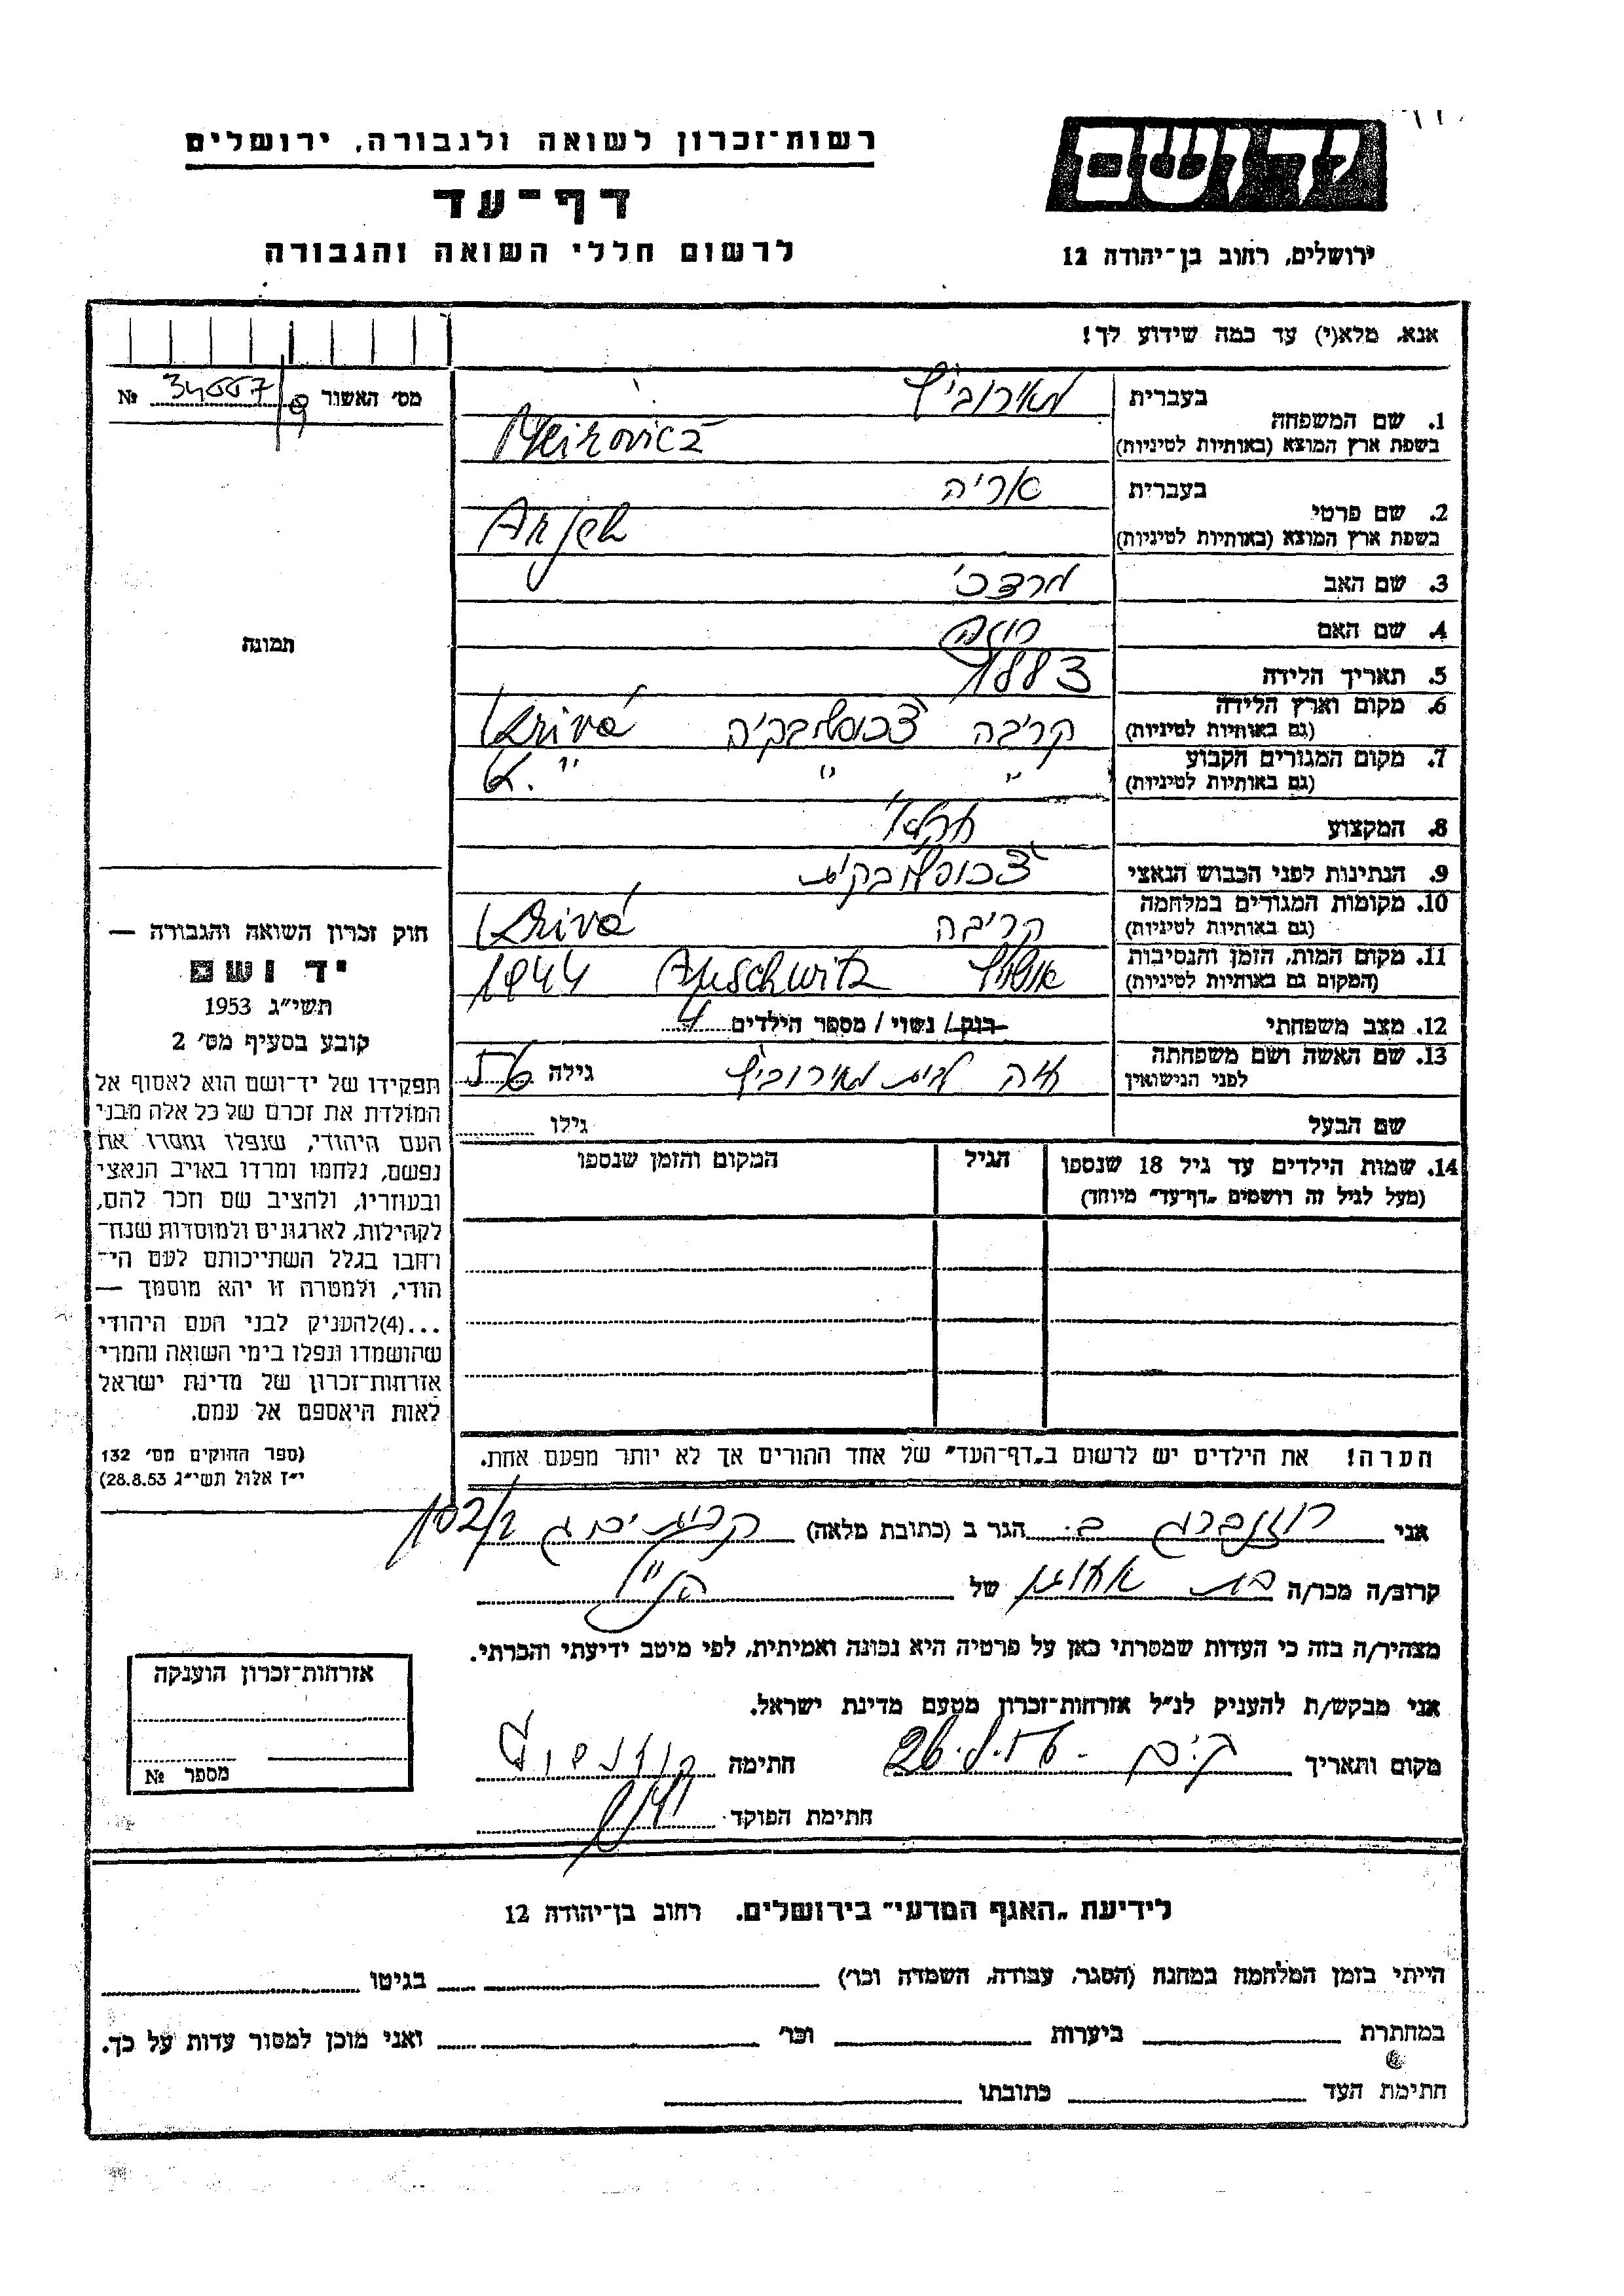 רשות־זכרון לשואה ולגבורה, ירושלים
דף־עד
לרשום חללי השואה והגבורה
ידושם
ירושלים, רחוב בן־יהודה 12
אנא, מלא(י) עד כמה שידוע לך!
מס׳ האשור 34557 №
תמונה
1. שם המשפחה בעברית מאירוביץ
בשפת ארץ המוצא (באותיות לטיניות) Meirovicz
2. שם פרטי בעברית אריה
בשפת ארץ המוצא (באותיות לטיניות) Arjeh
3. שם האב מרדכי
4. שם האם רוזה
5. תאריך הלידה 1883
6. מקום וארץ הלידה קריבה צ׳כוסלובקיה Krivá
(גם באותיות לטיניות)
7. מקום המגורים הקבוע " " K. "
(גם באותיות לטיניות)
8. המקצוע חקלאי
9. הנתינות לפני הכבוש הנאצי צ׳כוסלובקית
10. מקומות המגורים במלחמה קריבה Krivá
(גם באותיות לטיניות)
11. מקום המות, הזמן והנסיבות אושויץ Auschwitz 1944
(המקום גם באותיות לטיניות)
12. מצב משפחתי רווק / נשוי / מספר הילדים 4
13. שם האשה ושם משפחתה חיה לבית מאירוביץ גילה 56
לפני הנישואין
שם הבעל גילו
14. שמות הילדים עד גיל 18 שנספו הגיל המקום והזמן שנספו
(מעל לגיל זה רושמים „דף־עד״ מיוחד)
הערה! את הילדים יש לרשום ב„דף־העד״ של אחד ההורים אך לא יותר מפעם אחת.
חוק זכרון השואה והגבורה —
יד ושם
תשי״ג 1953
קובע בסעיף מס׳ 2
תפקידו של יד־ושם הוא לאסוף אל
המולדת את זכרם של כל אלה מבני
העם היהודי, שנפלו ומסרו את
נפשם, נלחמו ומרדו באויב הנאצי
ובעוזריו, ולהציב שם וזכר להם,
לקהילות, לארגונים ולמוסדות שנח־
רחבו בגלל השתייכותם לעם הי־
הודי, ולמטרה זו יהא מוסמך —
...(4)להעניק לבני העם היהודי
שהושמדו ונפלו בימי השואה והמרי
אזרחות־זכרון של מדינת ישראל
לאות היאספם אל עמם.
(ספר החוקים מס׳ 132
י״ז אלול תשי״ג 28.8.53)
אני רוזנברג ב. הגר ב (כתובת מלאה) קרית ים ג 102/2
קרוב/ה מכר/ה בת אחותו של הנ״ל
מצהיר/ה בזה כי העדות שמסרתי כאן על פרטיה היא נכונה ואמיתית, לפי מיטב ידיעתי והכרתי.
אני מבקש/ת להעניק לנ״ל אזרחות־זכרון מטעם מדינת ישראל.
מקום ותאריך ק.ים - חתימה
חתימת הפוקד
אזרחות־זכרון הוענקה
מספר №
לידיעת „האגף המדעי״ בירושלים, רחוב בן־יהודה 12
הייתי בזמן המלחמה במחנה (הסגר, עבודה, השמדה וכו׳) בגיטו
במחתרת ביערות וכו׳ ואני מוכן למסור עדות על כך.
חתימת העד כתובתו